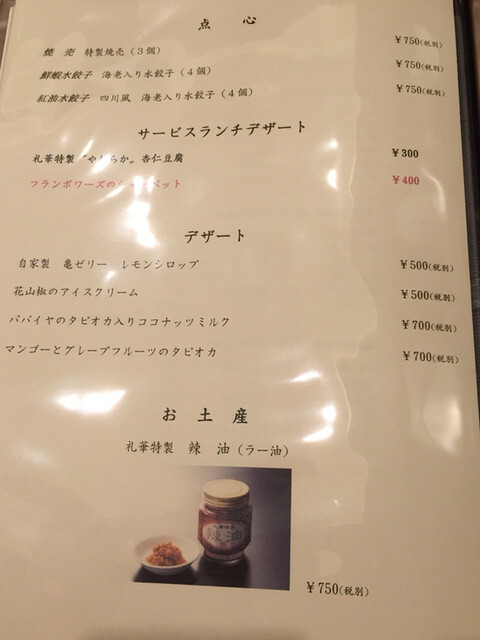 点心
焼売 特製焼売(3個) ¥750(税別)
鮮蝦水餃子 海老入り水餃子(4個) ¥750(税別)
紅油水餃子 四川風 海老入り水餃子(4個) ¥750(税別)
サービスランチデザート
礼華特製"やわらか"杏仁豆腐 ¥300
フランボワーズのシャーベット ¥400
デザート
自家製 亀ゼリー レモンシロップ ¥500(税別)
花山椒のアイスクリーム ¥500(税別)
パパイヤのタピオカ入りココナッツミルク ¥700(税別)
マンゴーとグレープフルーツのタピオカ ¥700(税別)
お土産
礼華特製 辣油(ラー油)
辣油
¥750(税別)